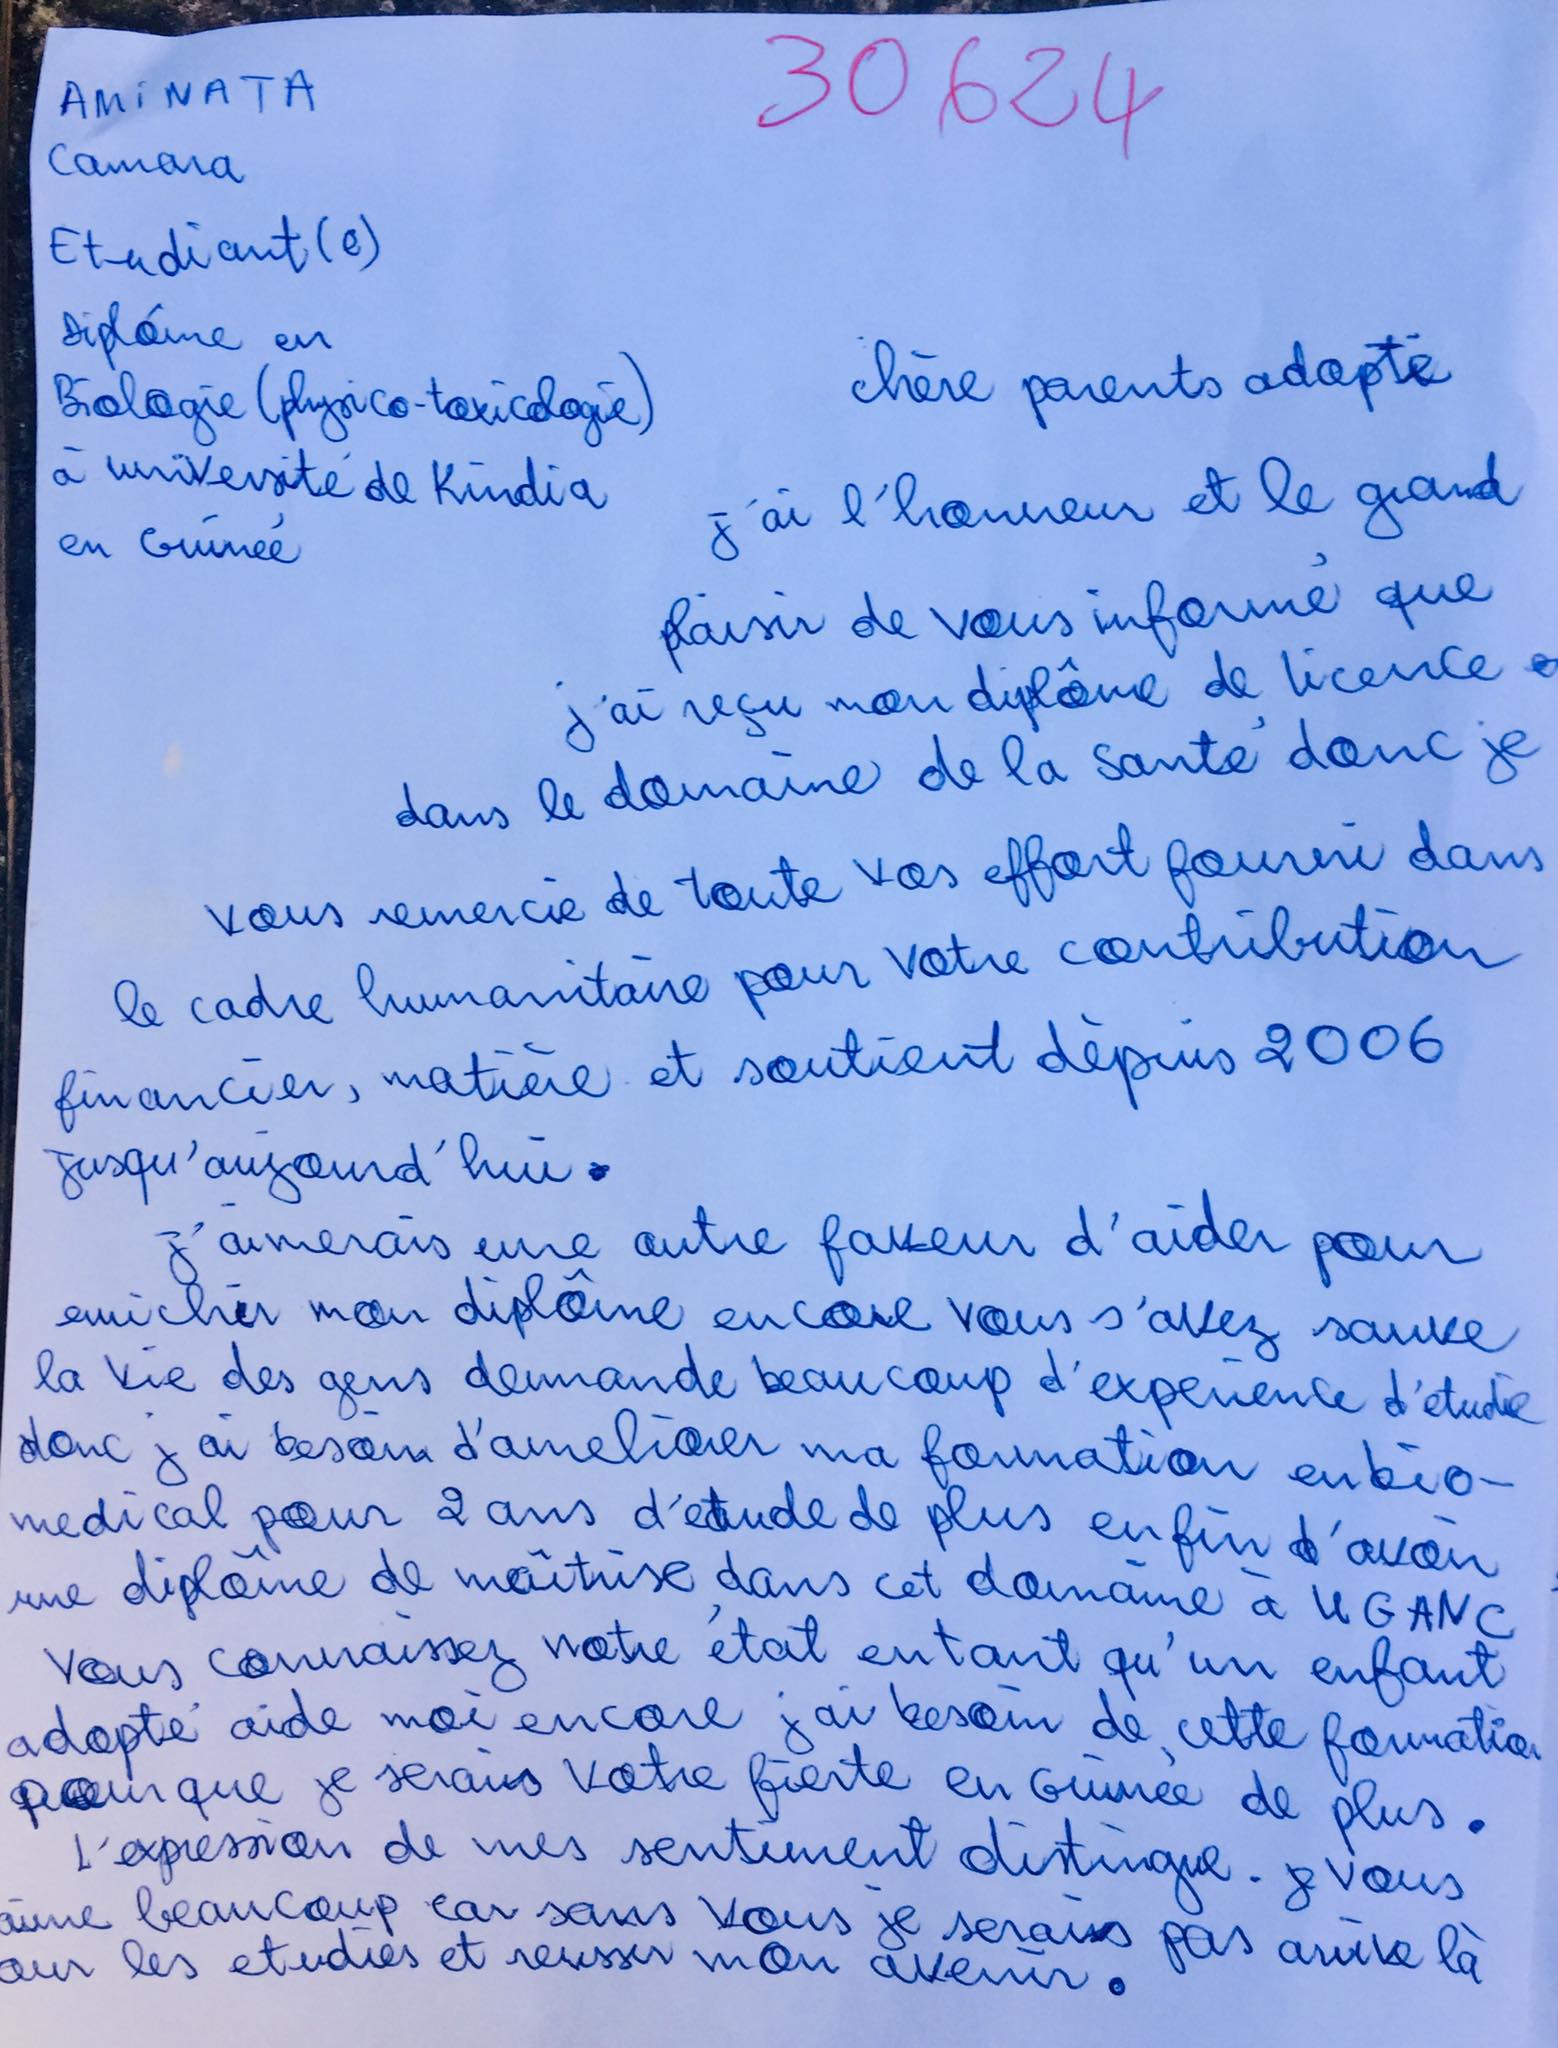 30624
AMiNATA
Camara
Etudiant(e)
Diplôme en
Biologie (physico-toxicologie)
à université de Kindia
en Guinéé
chère parents adopté
j'ai l'honneur et le grand
plaisir de vous informé que
j'ai reçu mon diplôme de licence
dans le domaine de la santé donc je
vous remercie de toute vos effort fourni dans
le cadre humanitaire pour votre contribution
financier, matière et soutient dèpuis 2006
jusqu'aujourd'hui.
j'aimerais une autre faveur d'aider pour
enrichir mon diplôme encore vous s'avez sauve
la vie des gens demande beaucoup d'experience d'etudie
donc j'ai besoin d'ameliorer ma formation en bio-
medical pour 2 ans d'etude de plus enfin d'avoir
une diplôme de maîtrise dans cet domaine à UGANC
Vous connaissez notre état entant qu'un enfant
adopté aide moi encore j'ai besoin de cette formation
pour que je serais votre fierte en Guinée de plus.
L'expression de mes sentiment distingue. je vous
aime beaucoup car sans vous je serais pas arrive là
our les etudiés et reussir mon avenir.